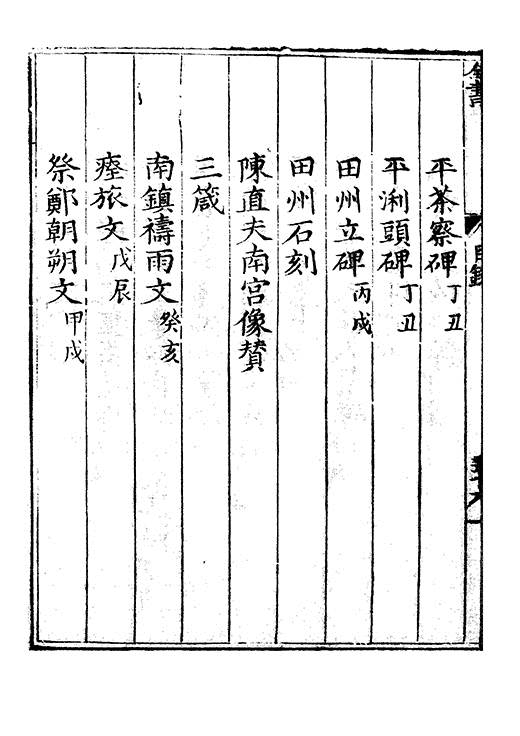 平茶寮碑 丁丑
平浰頭碑 丁丑
田州立碑 丙戌
田州石刻
陳直夫南宫像賛
三箴
南鎮禱雨文 癸亥
瘞旅文 戊辰
祭鄭朝朔文 甲戌